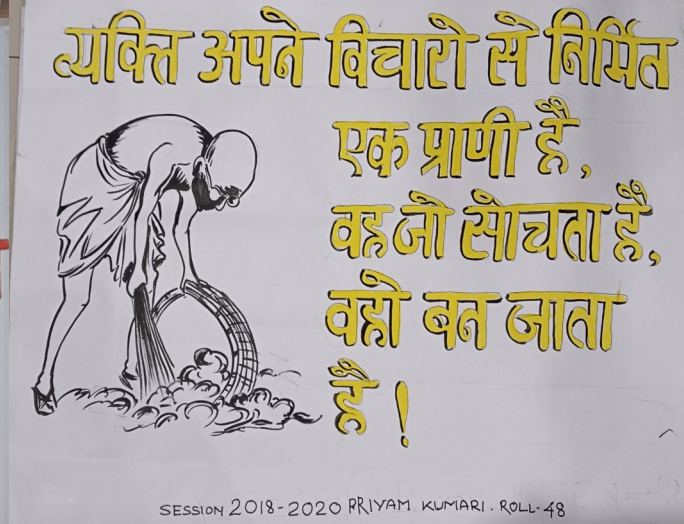 व्यक्ति अपने विचारो से निर्मित
एक प्राणी है,
वह जो सोचता है,
वही बन जाता
है !
SESSION 2018-2020 PRIYAM KUMARI. ROLL-48